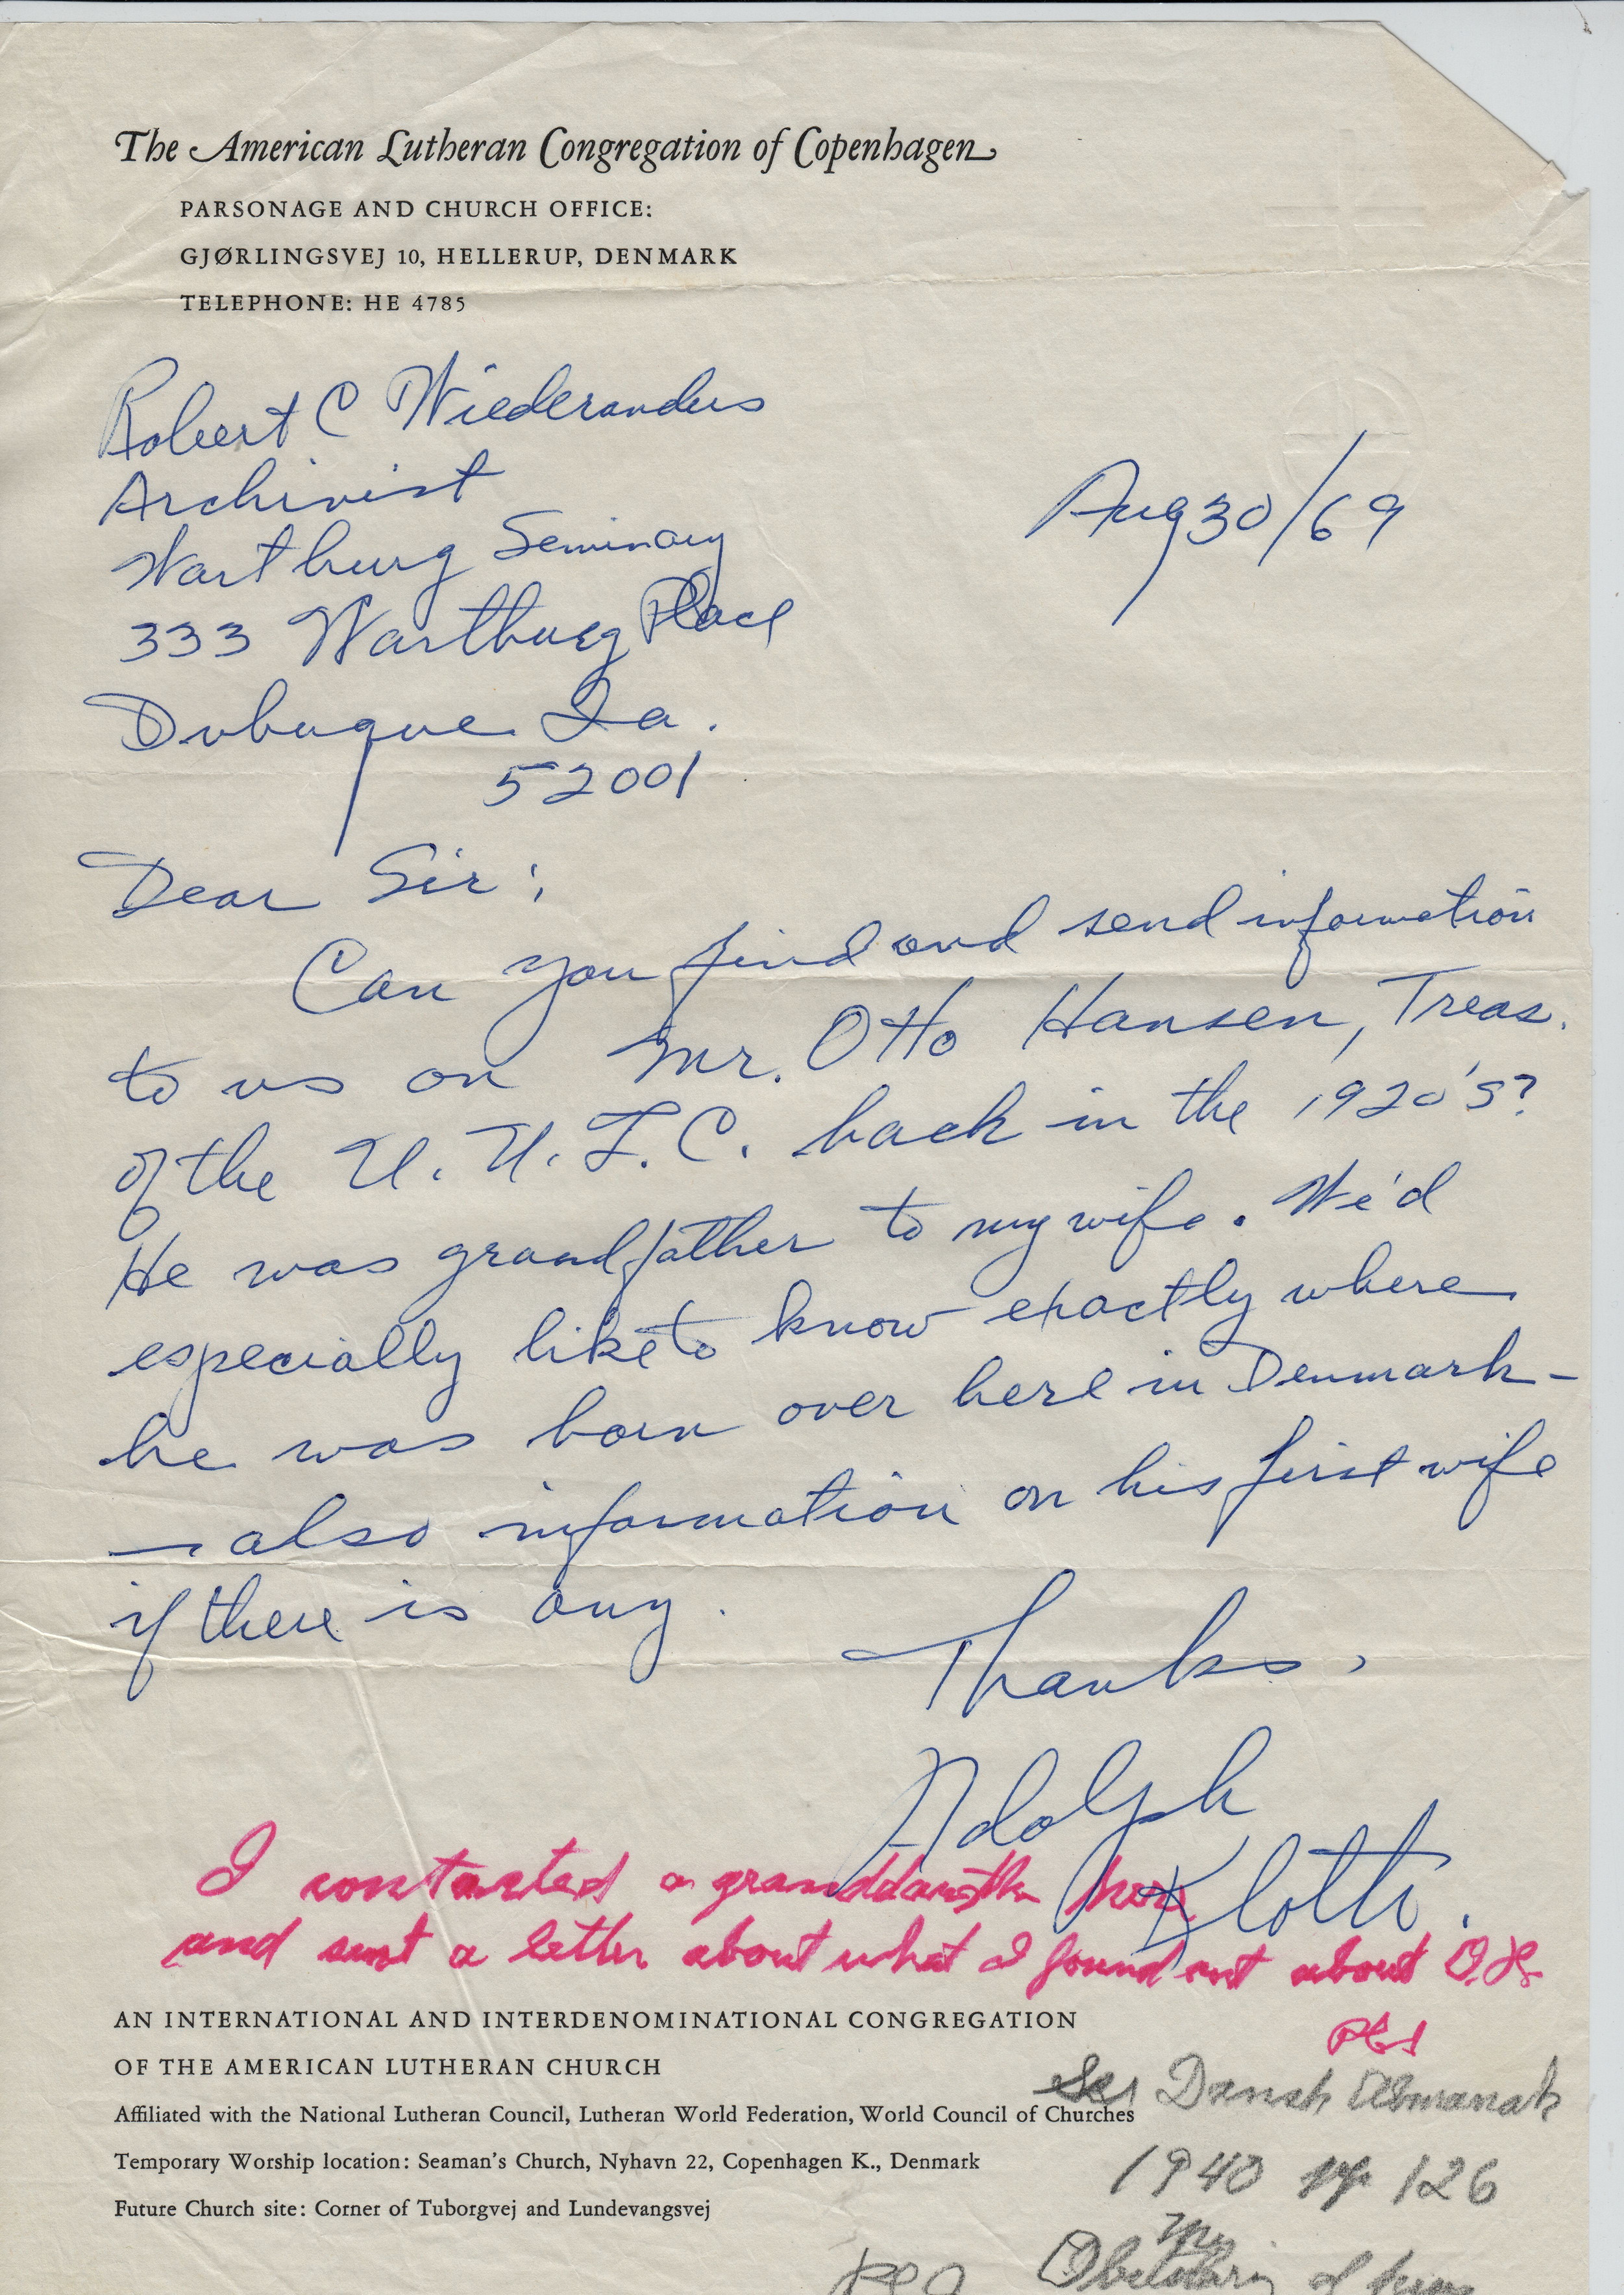 The American Lutheran Congregation of Copenhagen
PARSONAGE AND CHURCH OFFICE:
GJØRLINGSVEJ 10, HELLERUP, DENMARK
TELEPHONE: HE 4785
Robert C Wiederanders
Archivist
Wartburg Seminary
333 Wartburg Place
Dubuque Ia.
52001
Aug 30/69
Dear Sir:
Can you find and send information
to us on Mr. Otto Hansen, Treas.
of the U. U. L. C. back in the 1920's?
He was grandfather to my wife. We'd
especially like to know exactly where
he was born over here in Denmark -
- also information on his first wife
if there is any.
Thanks,
Adolph
Klotti.
I contacted a granddaughter here
and sent a letter about what I found out about O.H.
AN INTERNATIONAL AND INTERDENOMINATIONAL CONGREGATION
OF THE AMERICAN LUTHERAN CHURCH
Affiliated with the National Lutheran Council, Lutheran World Federation, World Council of Churches
Temporary Worship location: Seaman's Church, Nyhavn 22, Copenhagen K., Denmark
Future Church site: Corner of Tuborgvej and Lundevangsvej
See Dansk Almanak
1940 pp 126
my
Obituary of him